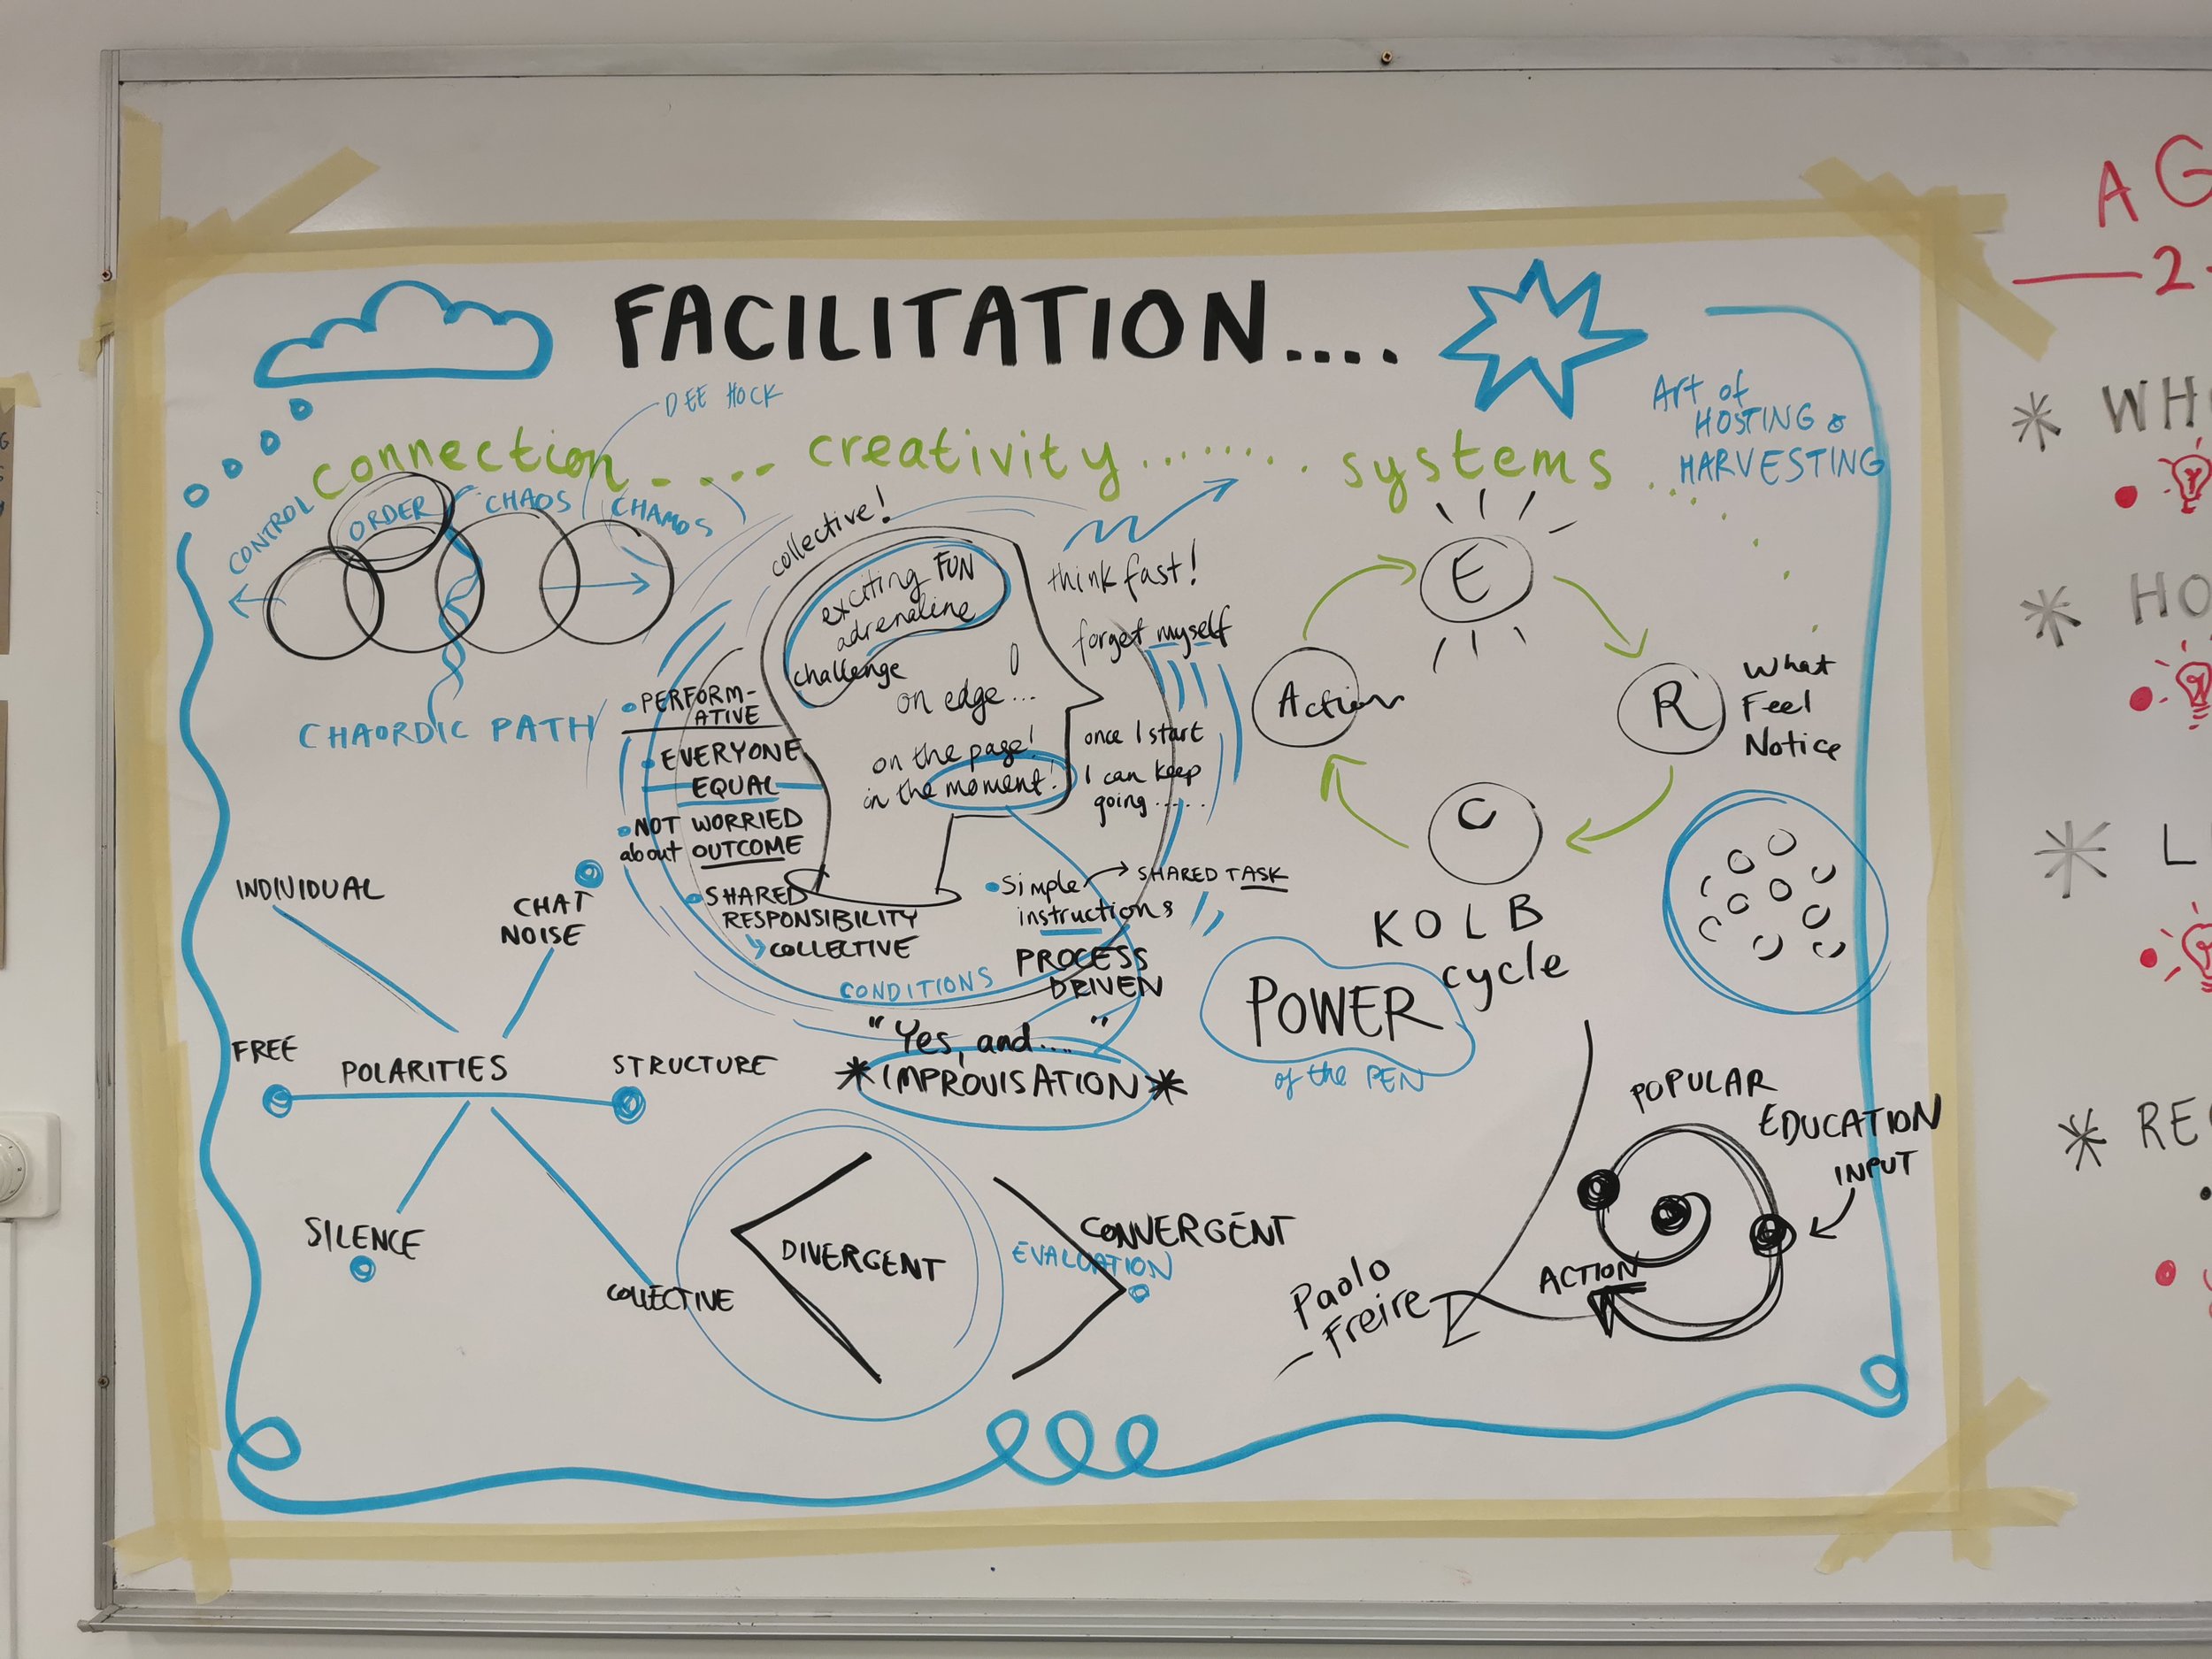 FACILITATION....
DEE HOCK
connection..... creativity........ systems...
Art of
HOSTING &
HARVESTING
CONTROL
ORDER
CHAOS
CHAMOS
CHAORDIC PATH
collective!
exciting FUN
adrenaline
challenge
on edge...
on the page!
in the moment!
think fast!
forget myself
once I start
I can keep
going.....
• PERFORM-
ATIVE
• EVERYONE
EQUAL
• NOT WORRIED
about OUTCOME
• SHARED
RESPONSIBILITY
COLLECTIVE
• Simple
instructions
SHARED TASK
PROCESS
DRIVEN
CONDITIONS
"Yes, and...."
*IMPROVISATION*
E
R
What
Feel
Notice
C
Action
KOLB
cycle
POWER
of the PEN
INDIVIDUAL
CHAT
NOISE
FREE
POLARITIES
STRUCTURE
SILENCE
COLLECTIVE
DIVERGENT
CONVERGENT
EVALUATION
POPULAR
EDUCATION
INPUT
ACTION
Paolo
Freire
AG
2
* WH
* HO
* L
* RE